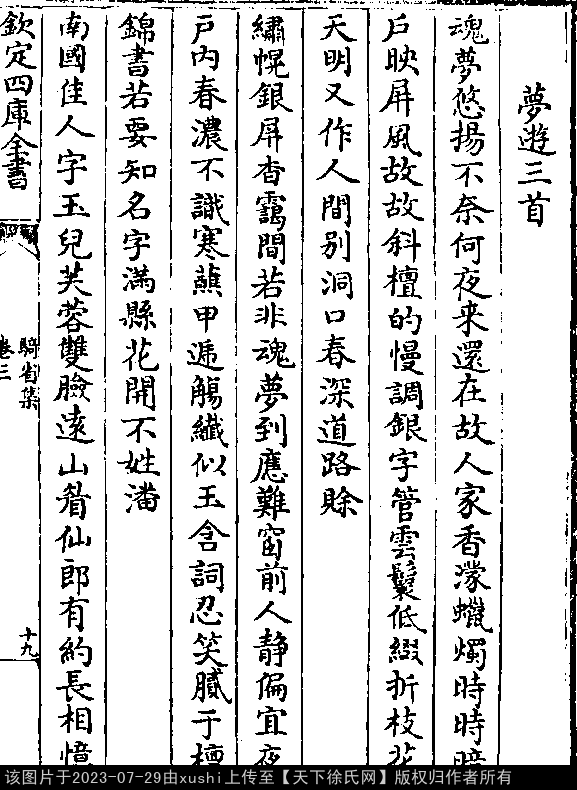 夢遊三首
魂夢悠揚不奈何夜来還在故人家香濛蠟燭時時暗
戶映屏風故故斜檀的慢調銀字管雲鬟低綴折枝花
天明又作人間别洞口春深道路賖
繡幌銀屏杳靄間若非魂夢到應難窗前人静偏宜夜
戶内春濃不識寒蘸甲遞觴纎似玉含詞忍笑膩于檀
錦書若要知名字滿縣花開不姓潘
南國佳人字玉兒芙蓉雙臉遠山眉仙郎有約長相憶
欽定四庫全書
騎省集
卷三
十九
该图片于2023-07-29由xushi上传至【天下徐氏网】版权归作者所有